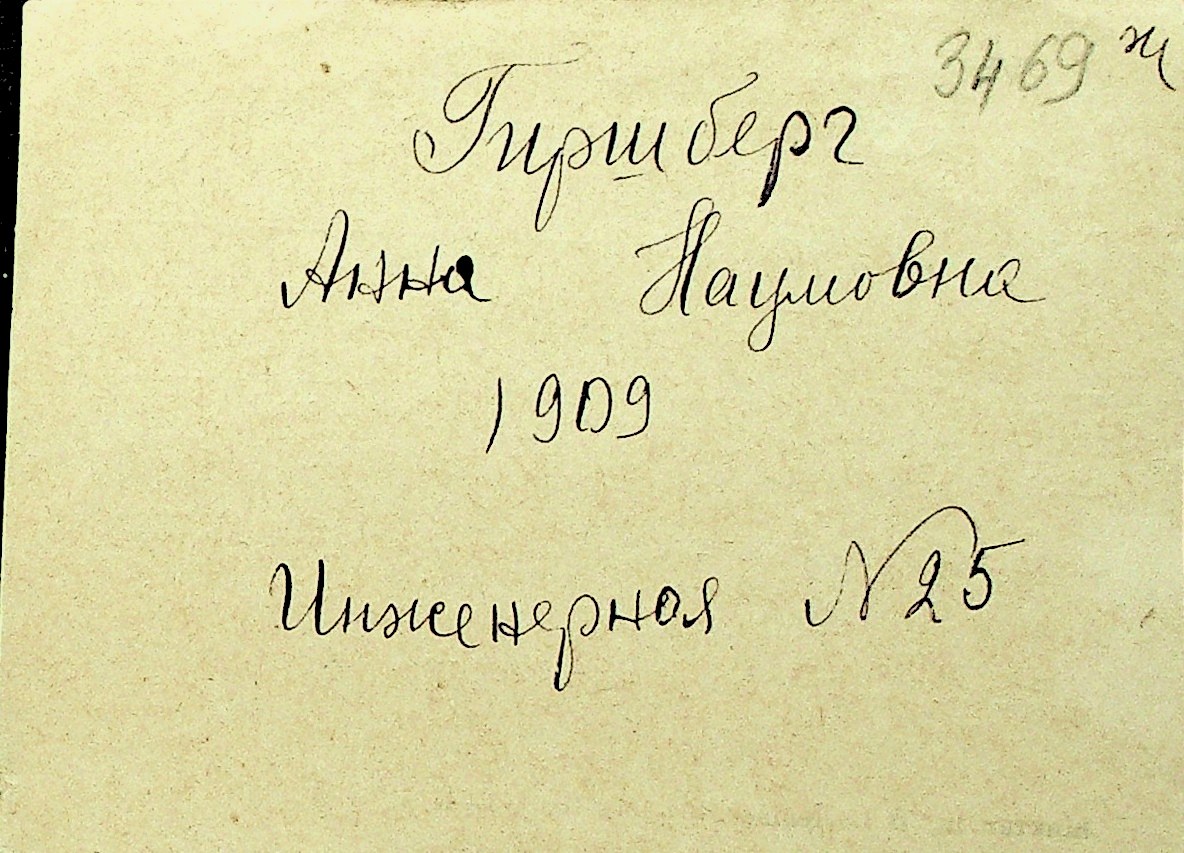 3469 ж
Гиршберг
Анна Наумовна
1909
Инженерная N 25